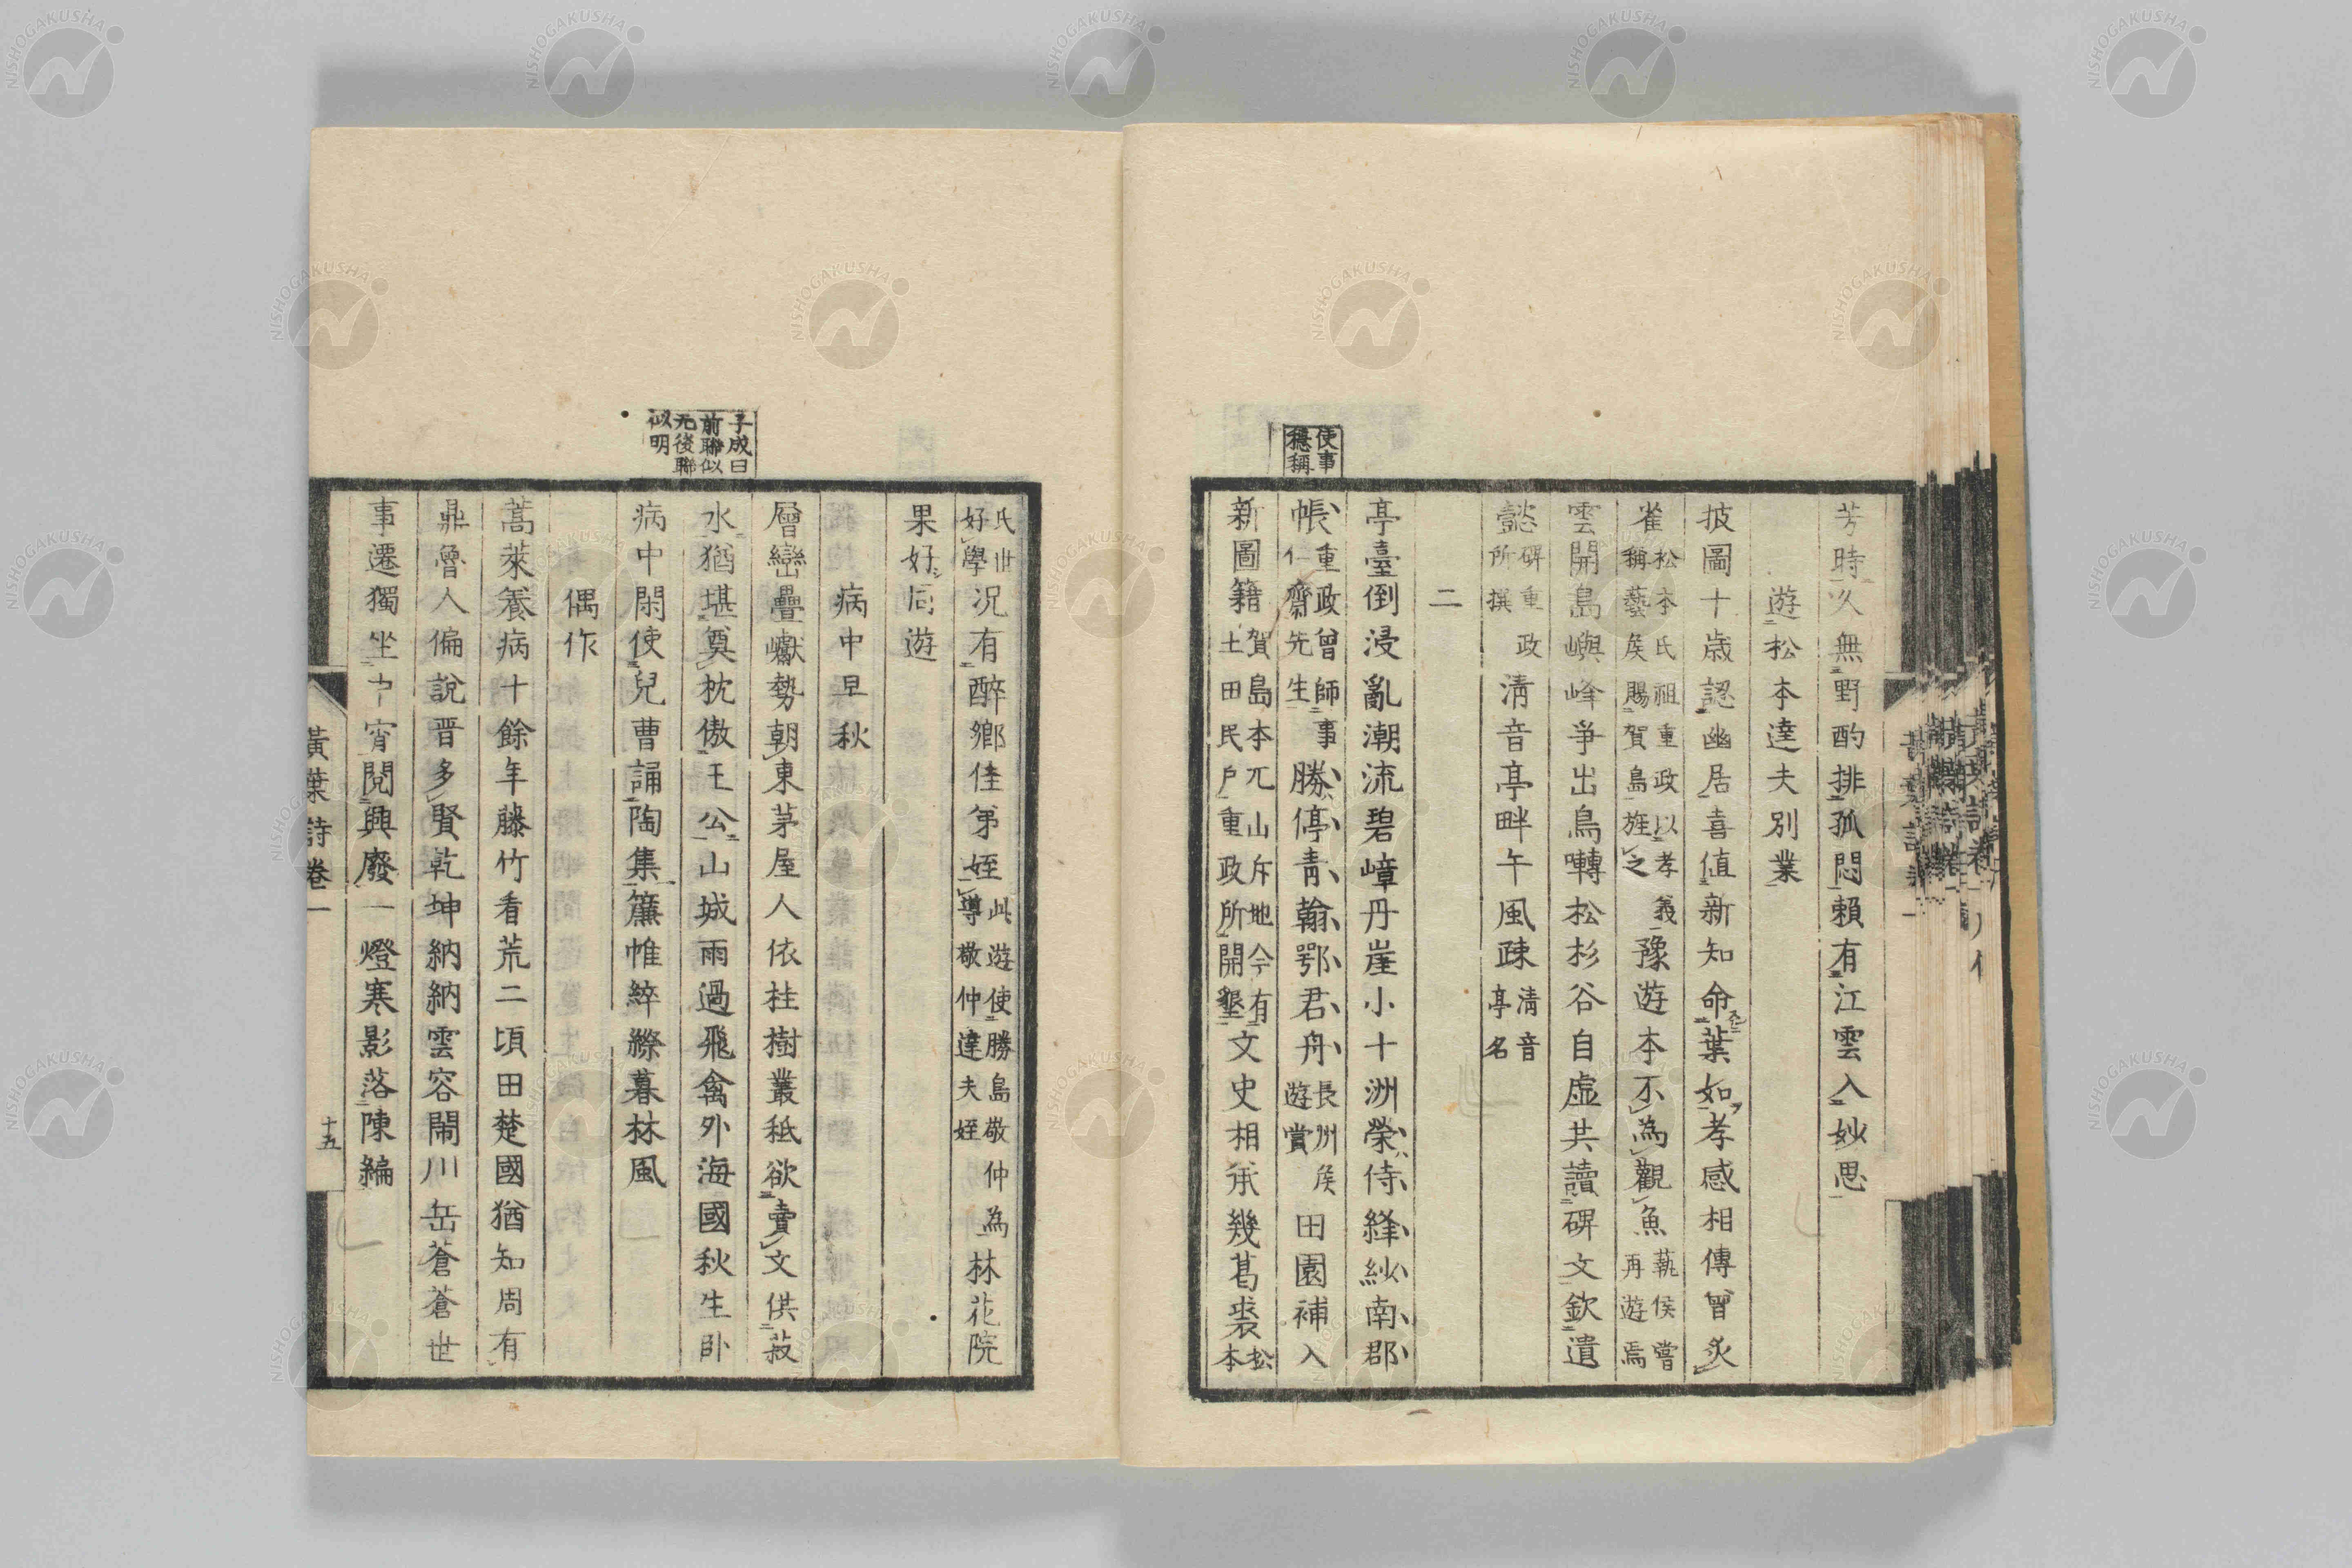 芳時久無野酌排孤悶賴有江雲入妙思
遊松本達夫別業
披圖十歲認幽居喜值新知命葉如孝感相傳曾炙
雀松本氏祖重政以孝義稱藝矦賜賀島旌之豫遊本不為觀魚執侯嘗再遊焉
雲開島嶼峰爭出鳥囀松杉谷自虛共讀碑文欽遺
懿碑重政所撰清音亭畔午風疎清音亭名
二
亭臺倒浸亂潮流碧嶂丹崖小十洲榮侍絳紗南郡
使事穩稱
帳重政曾師事仁齋先生勝停青翰鄂君舟長州矦遊賞田園補入
新圖籍賀島本兀山斥地今有土田民戶重政所開墾文史相承幾葛裘松本
氏世好學况有醉鄉佳弟姪此遊使勝島敬仲為導敬仲達夫姪林花院
果好同遊
病中早秋
層巒疊巘勢朝東茅屋人依桂樹叢秪欲賣文供菽
子成曰前聯似元後聯似明
水猶堪奠枕傲王公山城雨過飛禽外海國秋生卧
病中閑使兒曹誦陶集簾帷綷縩暮林風
偶作
蒿萊養病十餘年藤竹看荒二頃田楚國猶知周有
鼎魯人偏說晋多賢乾坤納納雲容閙川岳蒼蒼世
事遷獨坐中宵閱興廢一燈寒影落陳編
黃葉詩卷一
十五
NISHOGAKUSHA